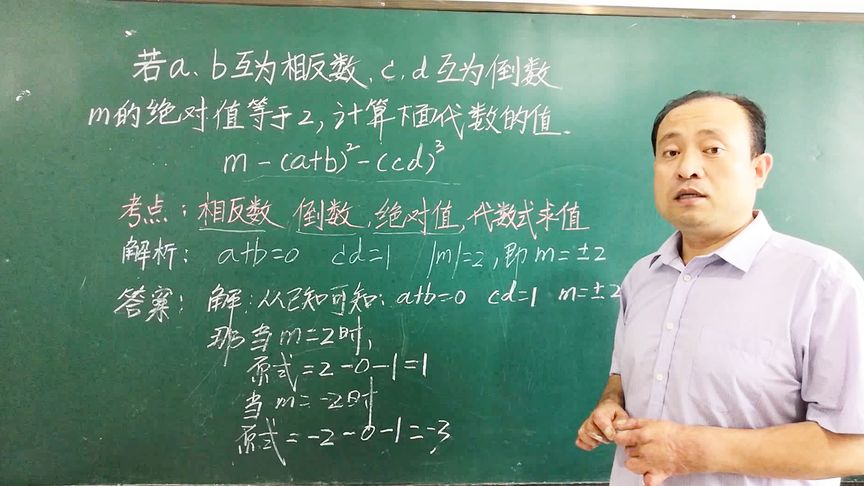 若a、b互为相反数、c,d互为倒数
m的绝对值等于2,计算下面代数的值.
m-(a+b)²-(cd)³
考点:相反数 倒数,绝对值,代数式求值
解析: a+b=0 cd=1 |m|=2,即m=±2
答案: 解:从已知可知:a+b=0 cd=1 m=±2
那当m=2时,
原式=2-0-1=1
当m=-2时
原式=-2-0-1=-3